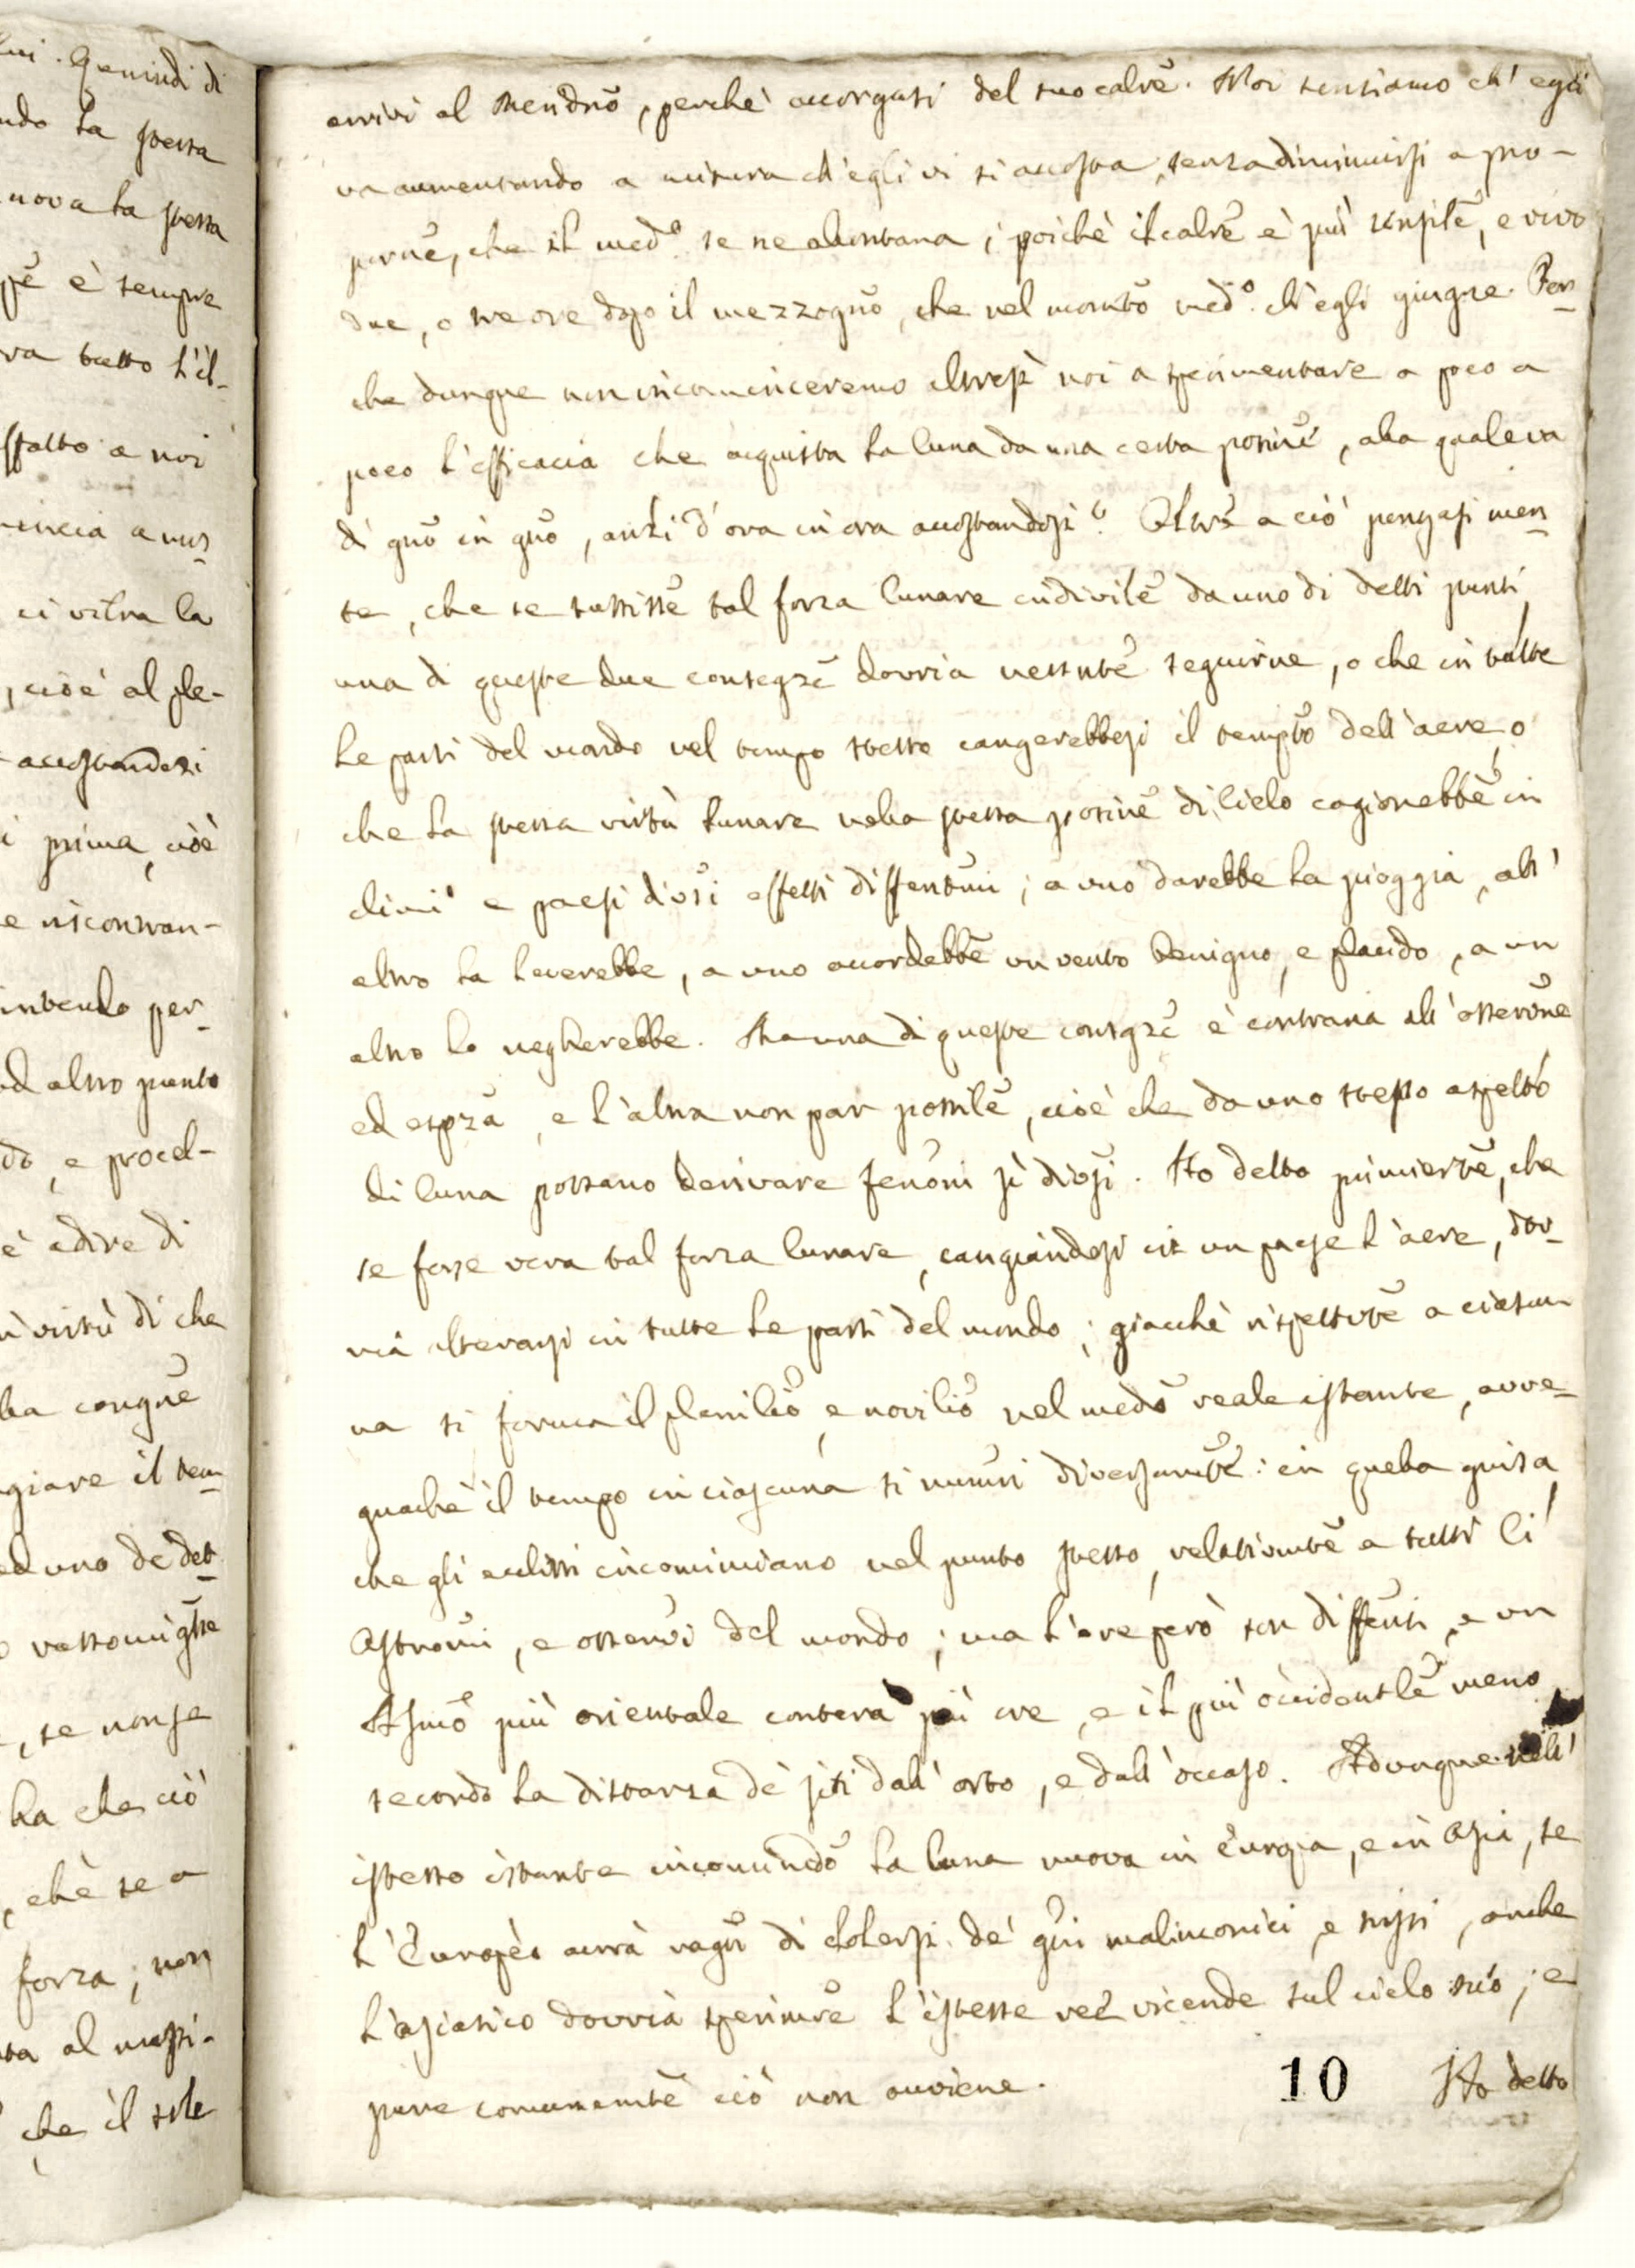 lui. Quindi di
ndo la stessa
nova la stessa
pē è sempre
va tutto l'el-
ffatto a noi
nincia a mus
ci vibra la
, cioè al ple-
accostandosi
i prima, cioè
e riscontran-
intendo per-
ed altro punto
do, e procel-
è a dire di
n virtù di che
lla congne
giare il tem
ed uno de det
o rassomigltte
, se non se
ha che ciò
, chè se a
forza; non
sta al massi-
che il sole
arrivi al Meridnō, perchè accorgasi del suo calrē. Noi sentiamo ch' egli
va aumentando a misura ch'egli vi si accosta, senza diminuirsi a pro-
porne, che il medº. se ne allontana; poichè il calrē è più sensilē, e vivo
due, o tre ore dopo il mezzognō, che nel momtō medº. ch'egli giugne. Per-
che dunque non incominceremo altresì noi a sperimentare a poco a
poco l'efficacia che acquista la luna da una certa posinē, alla quale va
di gnō in gnō, anzi d'ora in ora accostandosi? Oltrē a ciò pongasi men
te, che se sussissē tal forza lunare indivilē da uno di detti punti,
una di queste due consegzē dovria nessntē seguirne, o che in tutte
le parti del mondo nel tempo stesso cangerebbesi il temptō dell'aere, o
che la stessa virtù lunare nella stessa posinē di Cielo cagionebbē in
climi e paesi divsi effetti diffentmi; a uno darebbe la pioggia, all'
altro la leverebbe, a uno accordebbē un vento benigno, e placido, a un
altro lo negherebbe. Ma una di queste consgzē è contraria all'osservne
ed espza, e l'altra non par possilē, cioè che da uno stesso aspetto
di luna possano derivare fenōni sì divsi. Ho detto primiertē, che
se fosse vera tal forza lunare, cangiandosi in un paese l'aere, dov
ria alterarsi in tutte le parti del mondo; giacchè rispettvtē a ciascu
na si forma il plenilnō, e novilnō nel medō reale istante, avve-
gnachè il tempo in ciascuna si numri diversamtē: in quella guisa,
che gli ecclissi incominciano nel punto stesso, relativmtē a tutti li
Astronmi, e osservi del mondo; ma l'ore però son diffenti, e un
Astrnmō più orientale conterà più ore, e il più occidentalē meno
secondo la distanza de' siti dall'orto, e dall'occaso. Adunque nell'
istesso istante incomincndō la luna nuova in Europa, e in Asia, se
l'Europeo avrà ragn di dolersi de' gni malinconici, e tristi, anche
l'asiatico dovrià sperimrē l'istesse ree vicende sul cielo suo; e
pure comunemtē ciò non avviene.
10 Ho detto